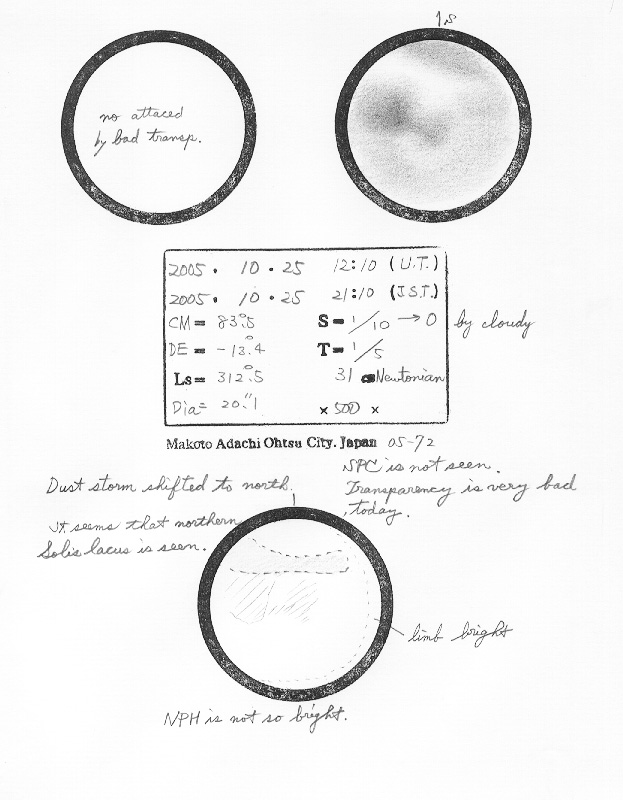 1s
no attaced
by bad transp.
2005. 10.25 12:10 (U.T.)
2005. 10.25 21:10 (J.S.T.)
CM= 83°.5 S= 1/10 → 0 by cloudy
DE= -13°.4 T= 1/5
Ls= 312°.5 31 Newtonian
Dia= 20".1 × 500 ×
Makoto Adachi Ohtsu City. Japan 05-72
SPC is not seen.
Transparency is very bad
today.
Dust storm shifted to north.
It seems that northern
Solis lacus is seen.
limb bright
NPH is not so bright.